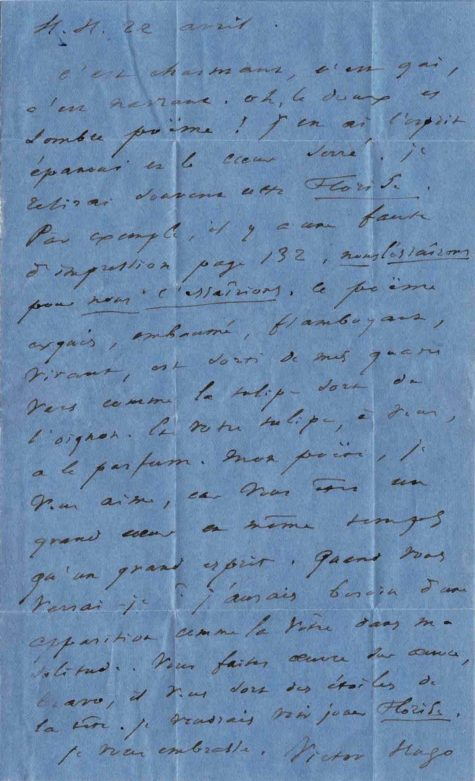 H. H. 22 avril.
C'est charmant, c'est gai,
c'est navrant. Oh, le doux et
sombre poëme ! J'en ai l'esprit
épanoui et le cœur serré. je
relirai souvent cette Floride.
Par exemple, il y a une faute
d'impression page 132, nous l'essaîrons
pour nous l'essaierions. Ce poëme
exquis, embaumé, flamboyant,
vivant, est sorti de mes quatre
vers comme la tulipe sort de
l'oignon. Et votre tulipe, à vous,
a le parfum. Mon poëte, je
vous aime, car vous êtes un
grand cœur en même temps
qu'un grand esprit. Quand vous
verrai-je ? j'aurais besoin d'une
apparition comme la vôtre dans ma
solitude. Vous faites œuvre sur œuvre,
bravo, il vous sort des étoiles de
la tête. je voudrais voir jouer Floride.
je vous embrasse. Victor Hugo